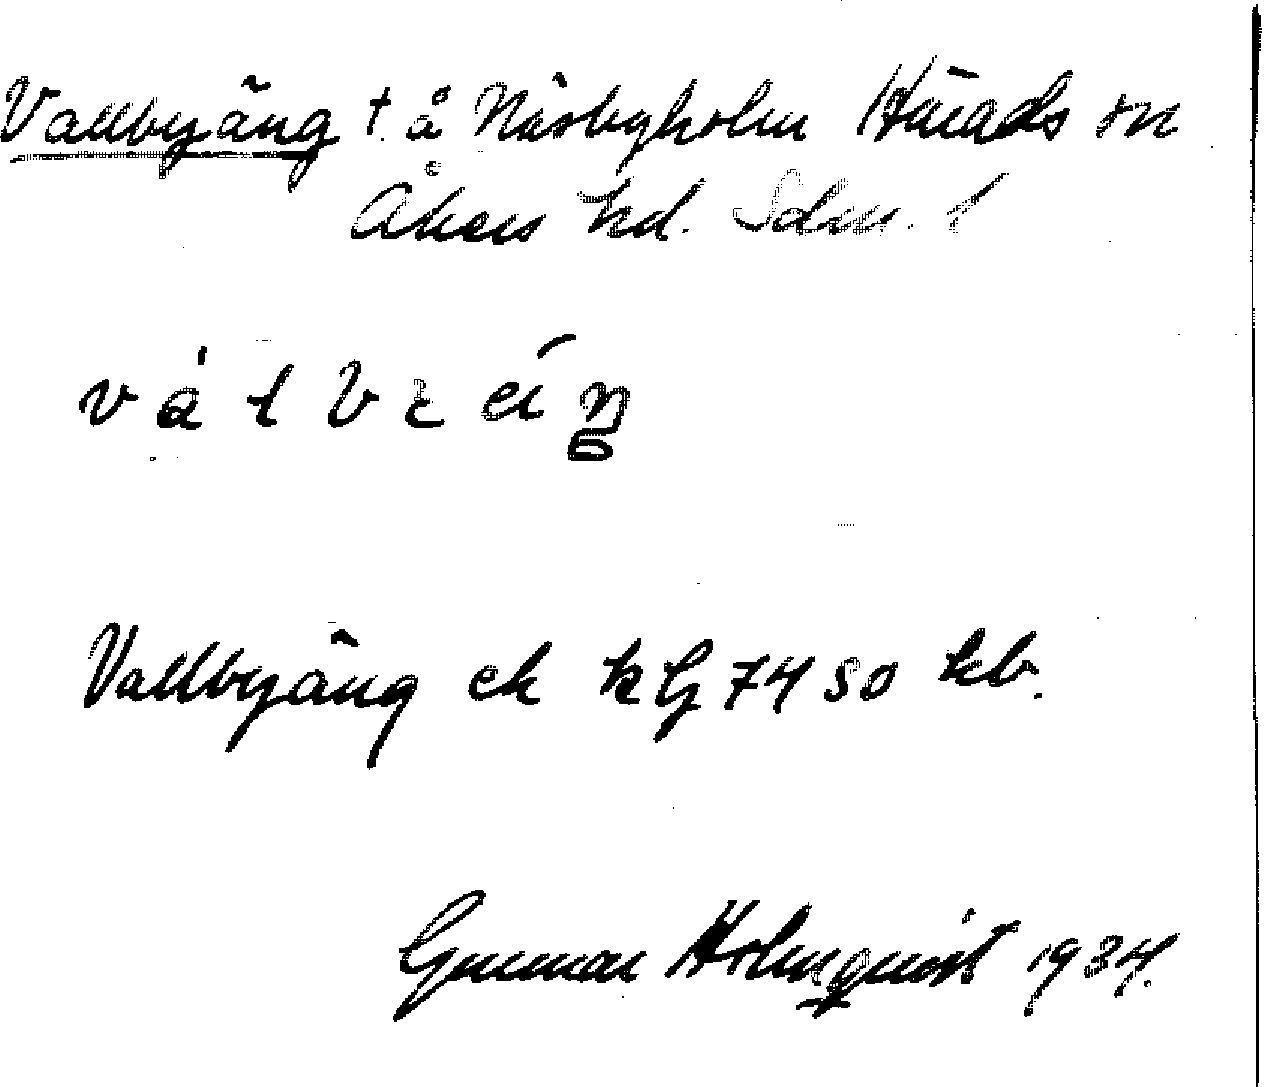 Vallbyäng t. å Näsbyholm Härads sn
Åkers hd. Sdm. 1
Vallbyäng ek kG 7450 kb.
Gunnar Holmquist 1934.